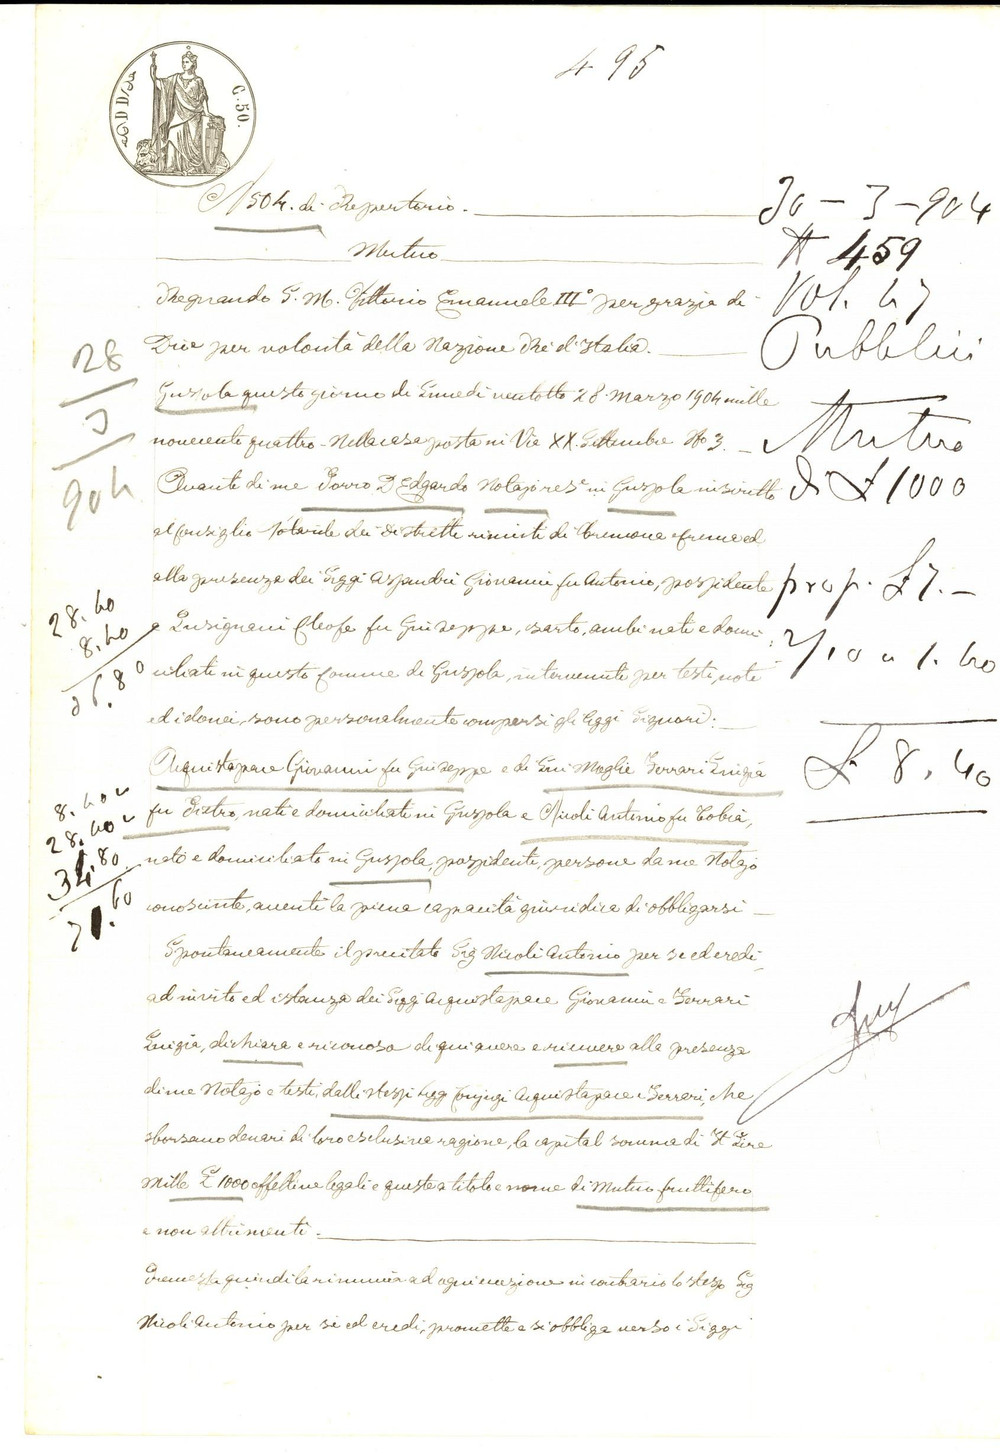 495
C. 50.
N 504. di Repertorio.
Mutuo
Regnando S. M. Vittorio Emanuele III° per grazia di
Dio e per volontà della Nazione Re d'Italia.
Gussola questo giorno di Lunedì ventotto 28 Marzo 1904 mille
novecento quattro - Nella casa posta in Via XX. Settembre No 3.
Avanti di me Porro D Edgardo Notajo res.e in Gussola inscritto
al Consiglio Notarile dei Distretti riuniti di Cremona e Crema ed
alla presenza dei Sigg Giovanni fu Antonio, possidente
e Cleofe fu Giuseppe, sarto, ambi nati e domi-
ciliati in questo Comune di Gussola, intervenuti per testi, noti
ed idonei, sono personalmente comparsi gli Sigg Signori:
Acquistapace Giovanni fu Giuseppe e di Lui Moglie Ferrari Luigia
fu Pietro, nati e domiciliati in Gussola e Nicoli Antonio fu Tobia,
nato e domiciliato in Gussola, possidenti, persone da me Notajo
conosciute, aventi la piena capacità giuridica di obbligarsi
Spontaneamente il precitato Sig Nicoli Antonio per se ed eredi,
ad invito ed istanza dei Sigg Acquistapace Giovanni e Ferrari
Luigia, dichiara e riconosce di qui avere e ricevere alla presenza
di me Notajo e testi, dalli stessi Sigg Conjugi Acquistapace e Ferrari, che
sborsano denari di loro esclusiva ragione, la capital somma di It Lire
Mille £ 1000 effettive legali e queste a titolo e nome di Mutuo fruttifero
e non altrimenti.
Premessa quindi la rinuncia ad ogni eccezione in contrario lo stesso Sig
Nicoli Antonio per se ed eredi, promette e si obbliga verso i Sigg
30 - 3 - 904
N 459
Vol. 47
Pubblici
Mutuo
di £ 1000
prop. £ 7. -
2/10 " 1. 40
£ 8. 40
28
3
904
28. 40
8. 40
36. 80
8. 40
28. 40
34. 80
71. 60